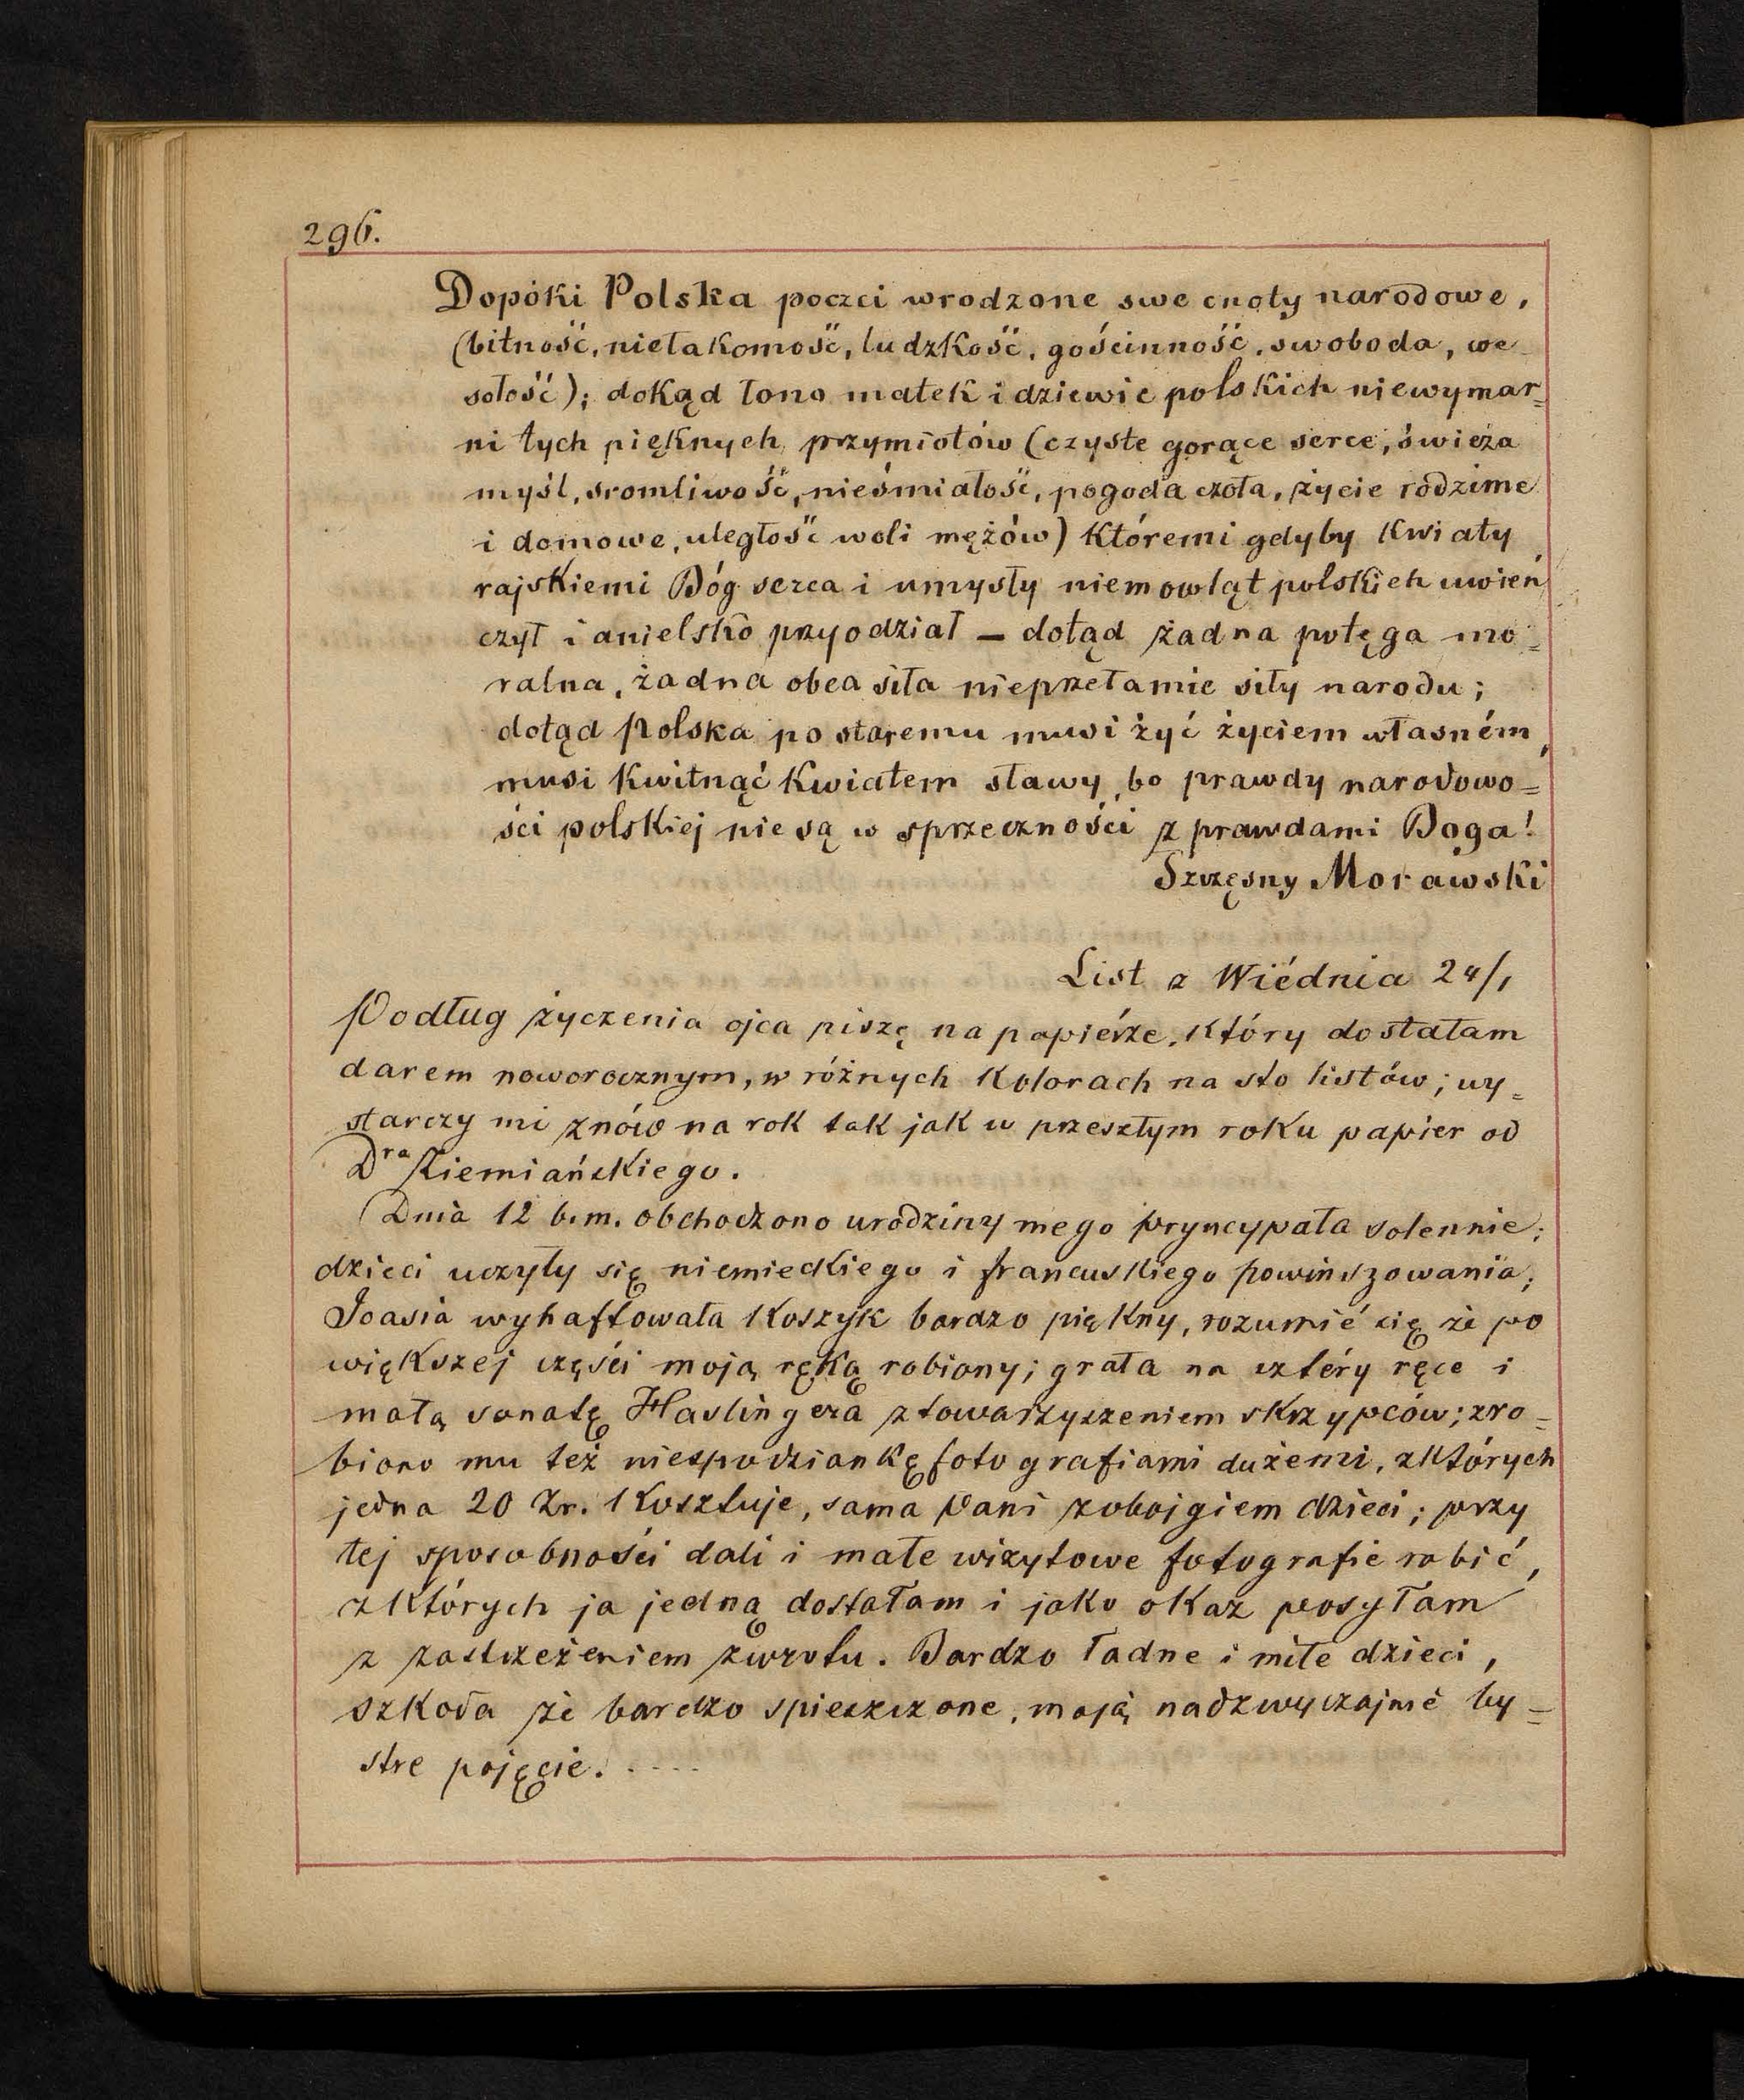 296.
Dopóki Polska poczci wrodzone swe cnoty narodowe,
(bitność, niełakomość, ludzkość, gościnność, swoboda, we-
sołość); dokąd łono matek i dziewic polskich niewymar=
ni tych pięknych przymiotów (czyste gorące serce, świeża
myśl, sromliwość, nieśmiałość, pogoda czoła, życie rodzime
i domowe, uległość woli mężów) któremi gdyby kwiaty
rajskiemi Bóg serca i umysły niemowląt polskich uwień
czył i anielsko przyodział – dotąd żadna potęga mo=
ralna, żadna obca siła nieprzełamie siły narodu;
dotąd Polska po staremu musi żyć życiem własném,
musi kwitnąć kwiatem sławy, bo prawdy narodowo=
ści polskiej nie są w sprzeczności z prawdami Boga!
Szczęsny Morawski
List z Wiédnia 24/1
Podług życzenia ojca piszę na papiérze, który dostałam
darem noworocznym, w różnych kolorach na sto listów; wy=
starczy mi znów na rok tak jak w przeszłym roku papier od
Dra Ziemiańskiego.
Dnia 12 b.m. obchodzono urodziny mego pryncypała solennie;
dzieci uczyły się niemieckiego i francuskiego powinszowania;
Joasia wyhaftowała koszyk bardzo piękny, rozumié się że po
większej części moją ręką robiony; grała na cztéry ręce i
małą sonatę Haslingera z towarzyszeniem skrzypców; zro=
biono mu też niespodziankę fotografiami dużemi, z których
jedna 20 Zr. kosztuje, sama Pani z obojgiem dzieci; przy
tej sposobności dali i małe wizytowe fotografie robić,
z których ja jedną dostałam i jako okaz posyłam
z zastrzeżeniem zwrotu. Bardzo ładne i miłe dzieci,
szkoda że bardzo spieszczone, mają nadzwyczajnie by=
stre pojęcie. . . . .